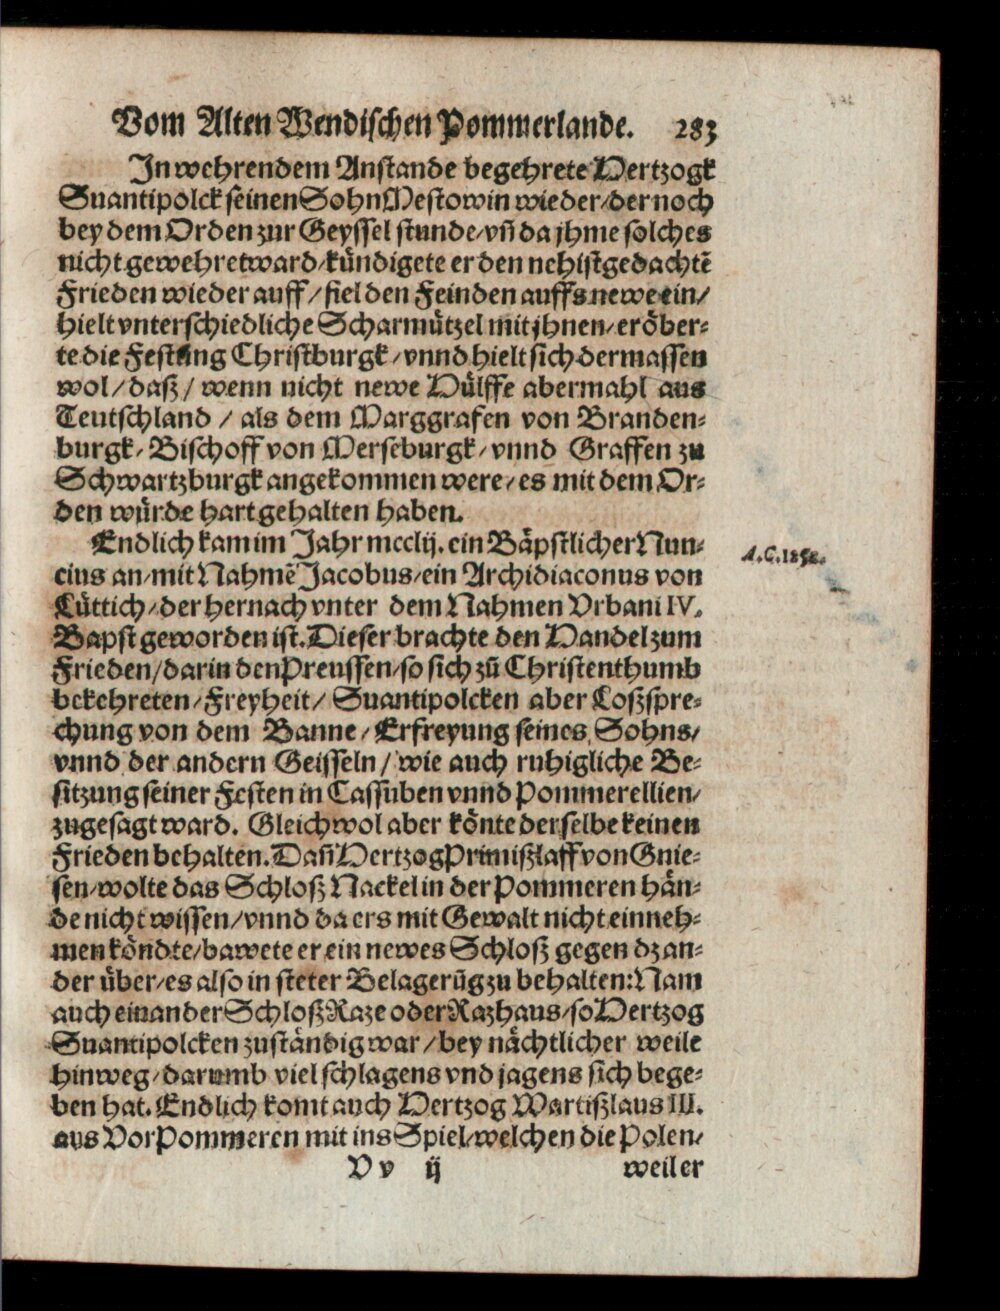 Vom Alten Wendischen Pommerlande. 283
In wehrendem Anstande begehrete Hertzogk
Suantipolck seinen Sohn Mestowin wieder/der noch
bey dem Orden zur Geyssel stunde/vñ da jhme solches
nicht gewehret ward/kündigete er den nehistgedachtẽ
Frieden wieder auff/fiel den Feinden auffs newe ein/
hielt vnterschiedliche Scharmützel mit jhnen/eröber-
te die Festung Christburgk/vnnd hielt sich dermassen
wol/daß/wenn nicht newe Hülffe abermahl aus
Teutschland/als dem Marggrafen von Branden-
burgk/Bischoff von Merseburgk/vnnd Graffen zu
Schwartzburgk angekommen were/es mit dem Or-
den würde hart gehalten haben.
Endlich kam im Jahr mcclij. ein Bäpstlicher Nun-
cius an/mit Nahmẽ Jacobus/ein Archidiaconus von
Lüttich/der hernach vnter dem Nahmen Vrbani IV.
Bapst geworden ist. Dieser brachte den Handel zum
Frieden/darin den Preussen/so sich zũ Christenthumb
bekehreten/Freyheit/Suantipolcken aber Loßspre-
chung von dem Banne/Erfreyung seines Sohns/
vnnd der andern Geisseln/wie auch ruhigliche Be-
sitzung seiner Festen in Cassuben vnnd Pommerellien/
zugesagt ward. Gleichwol aber könte derselbe keinen
Frieden behalten. Dañ Hertzog Primißlaff von Gnie-
sen/wolte das Schloß Nackel in der Pommeren hän-
de nicht wissen/vnnd da ers mit Gewalt nicht einneh-
men köndte/bawete er ein newes Schloß gegen dz an-
der über/es also in steter Belagerũg zu behalten: Nam
auch ein ander Schloß Raze oder Razhaus/so Hertzog
Suantipolcken zuständig war/bey nächtlicher weile
hinweg/darumb viel schlagens vnd jagens sich bege-
ben hat. Endlich komt auch Hertzog Wartißlaus III.
aus Vor Pommeren mit ins Spiel/welchen die Polen/
V v ij weil er
A.C.1252.